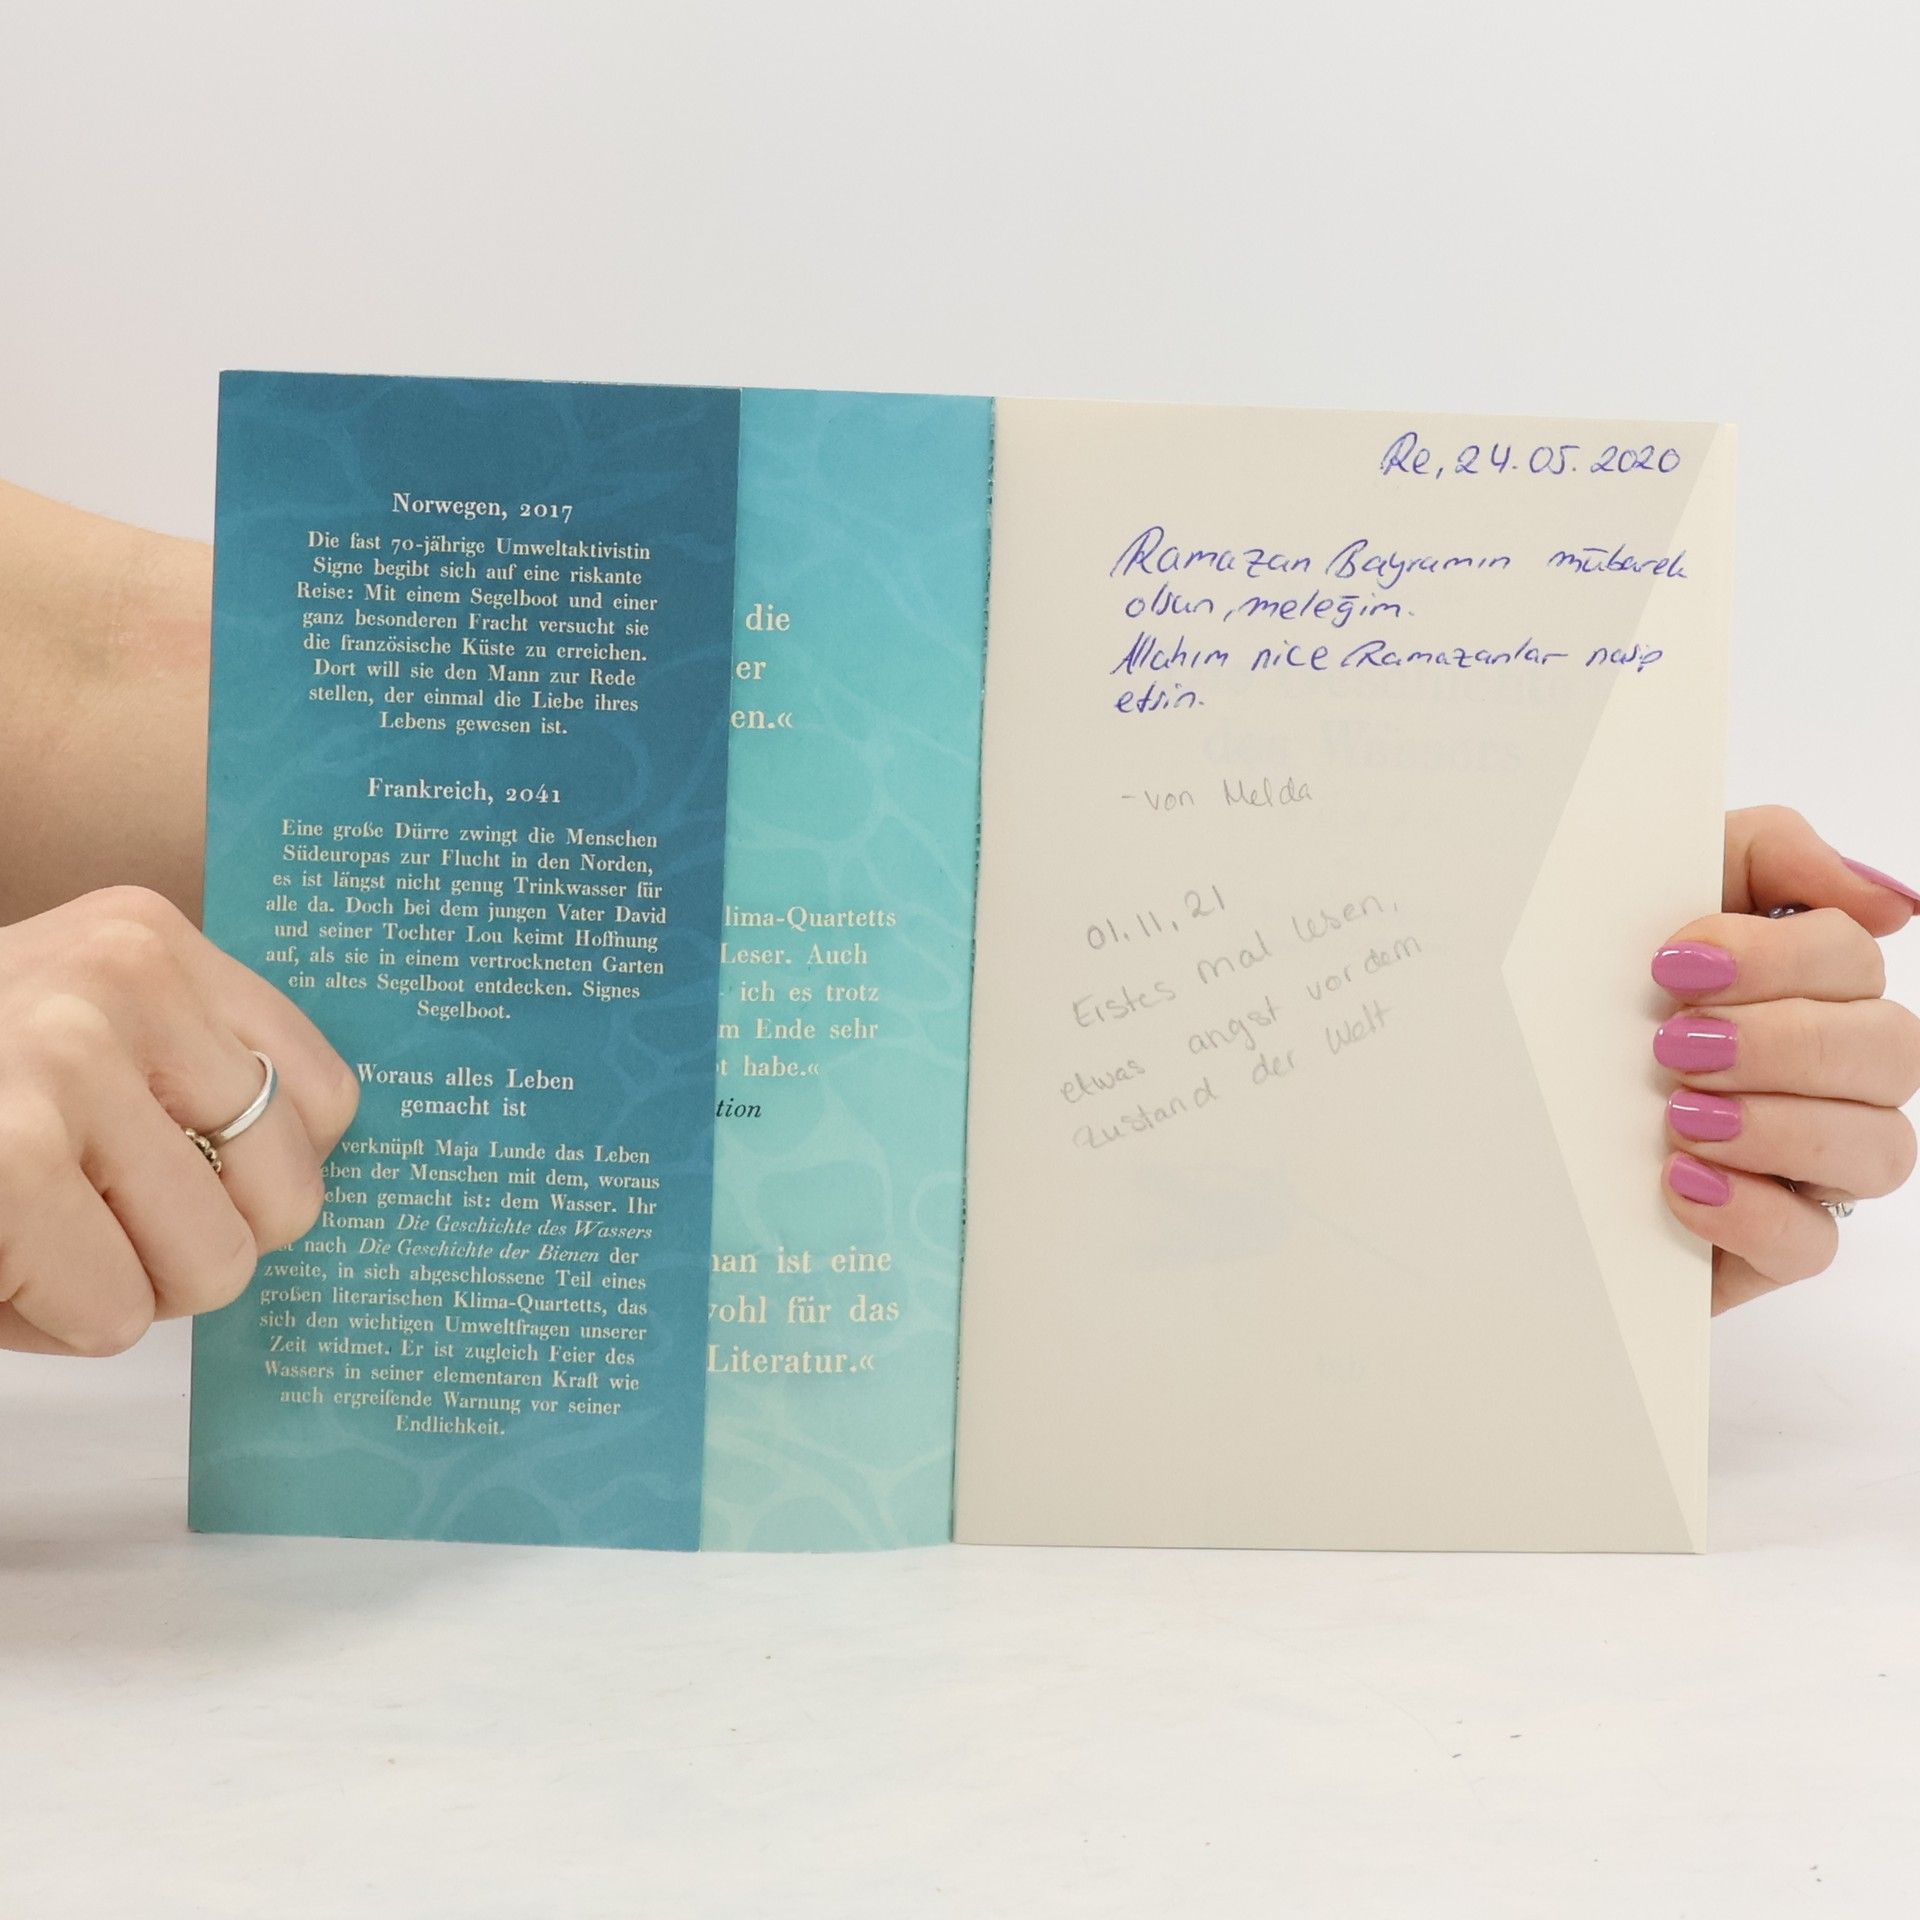 Norwegen, 2017
Die fast 70-jährige Umweltaktivistin
Signe begibt sich auf eine riskante
Reise: Mit einem Segelboot und einer
ganz besonderen Fracht versucht sie
die französische Küste zu erreichen.
Dort will sie den Mann zur Rede
stellen, der einmal die Liebe ihres
Lebens gewesen ist.
Frankreich, 2041
Eine große Dürre zwingt die Menschen
Südeuropas zur Flucht in den Norden,
es ist längst nicht genug Trinkwasser für
alle da. Doch bei dem jungen Vater David
und seiner Tochter Lou keimt Hoffnung
auf, als sie in einem vertrockneten Garten
ein altes Segelboot entdecken. Signes
Segelboot.
Woraus alles Leben
gemacht ist
verknüpft Maja Lunde das Leben
eben der Menschen mit dem, woraus
eben gemacht ist: dem Wasser. Ihr
Roman Die Geschichte des Wassers
nach Die Geschichte der Bienen der
zweite, in sich abgeschlossene Teil eines
großen literarischen Klima-Quartetts, das
sich den wichtigen Umweltfragen unserer
Zeit widmet. Er ist zugleich Feier des
Wassers in seiner elementaren Kraft wie
auch ergreifende Warnung vor seiner
Endlichkeit.
die
er
en.«
lima-Quartetts
Leser. Auch
ich es trotz
m Ende sehr
t habe.«
tion
man ist eine
wohl für das
Literatur.«
Re, 24.05.2020
Ramazan Bayramın mübarek
olsun, meleğim.
Allahım nice Ramazanlar nasip
etsin.
- von Melda
01.11.21
Erstes mal lesen,
etwas angst vor dem
zustand der Welt